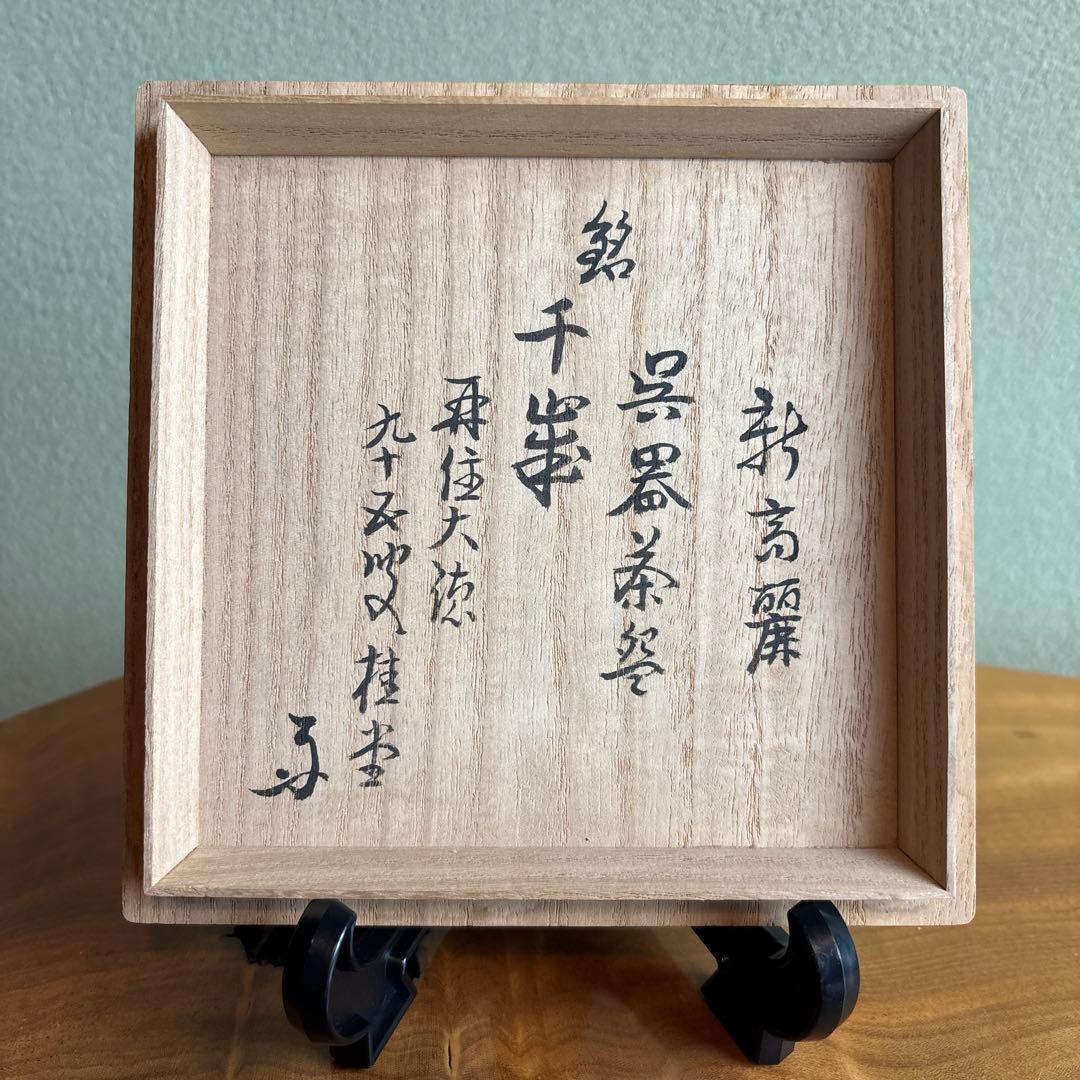 新高麗
呉器茶盌
銘 千歳
再住大徳
九十五叟 桂堂